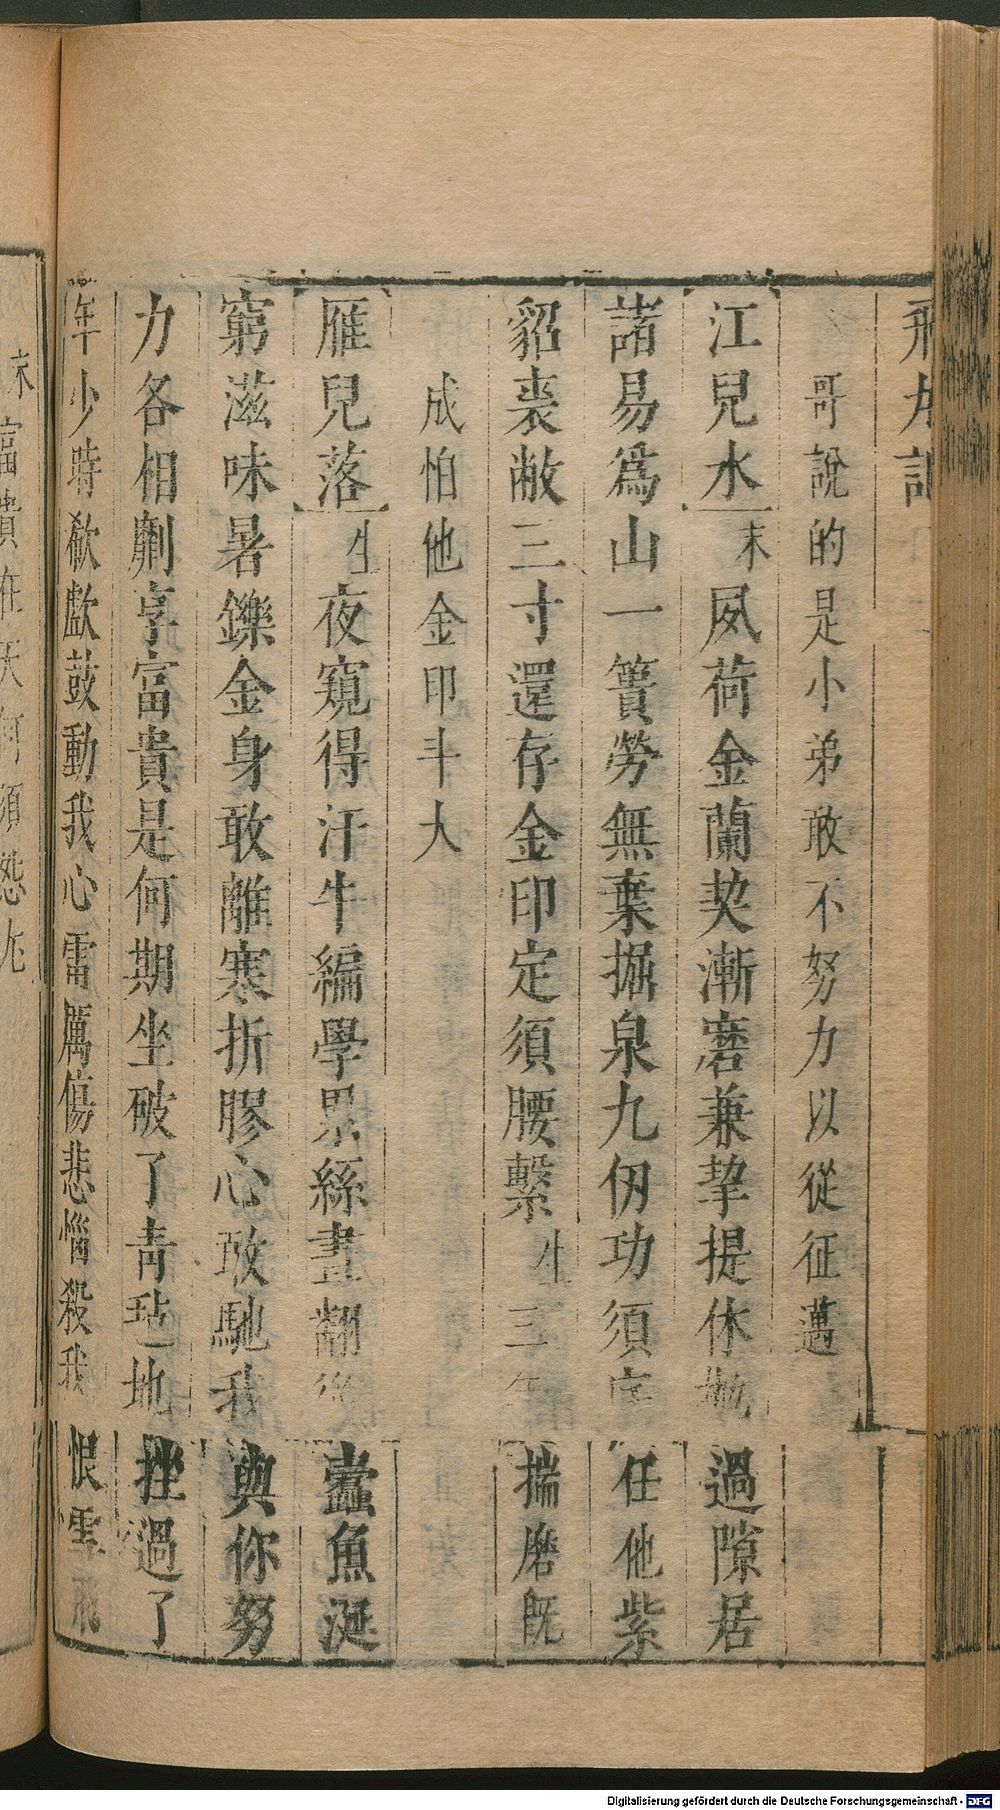 飛丸記
哥說的是小弟敢不努力以從征邁
江兒水末夙荷金蘭契漸磨兼挈提休
過隙居
諸易爲山一簣勞無棄掘泉九仞功須
任他紫
貂裘敝三寸還存金印定須腰繫生三年
揣磨既
成怕他金印斗大
雁兒落生夜窺得汗牛編學累絲畫翻
蠹魚涎
窮滋味暑鑠金身敢離寒折膠心敢馳我
與你努
力各相劘享富貴是何期坐破了青毡地
挫過了
年少時欷歔鼓動我心雷厲傷悲惱殺我
恨雪飛
末富貴在天何須怨尤
Digitalisierung gefördert durch die Deutsche Forschungsgemeinschaft - DFG